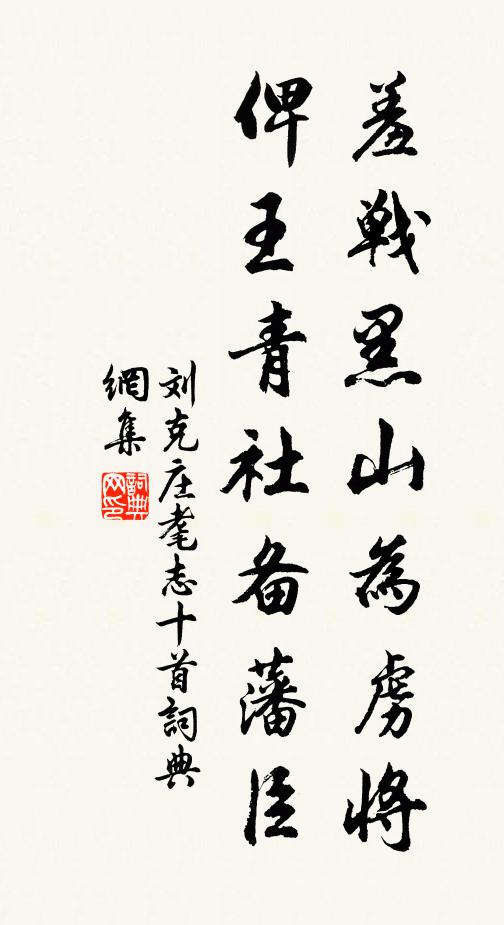 羞戦黑山為虏將
俾王青社备藩臣
刘克庄耄志十首詞典
網集
詞典网印